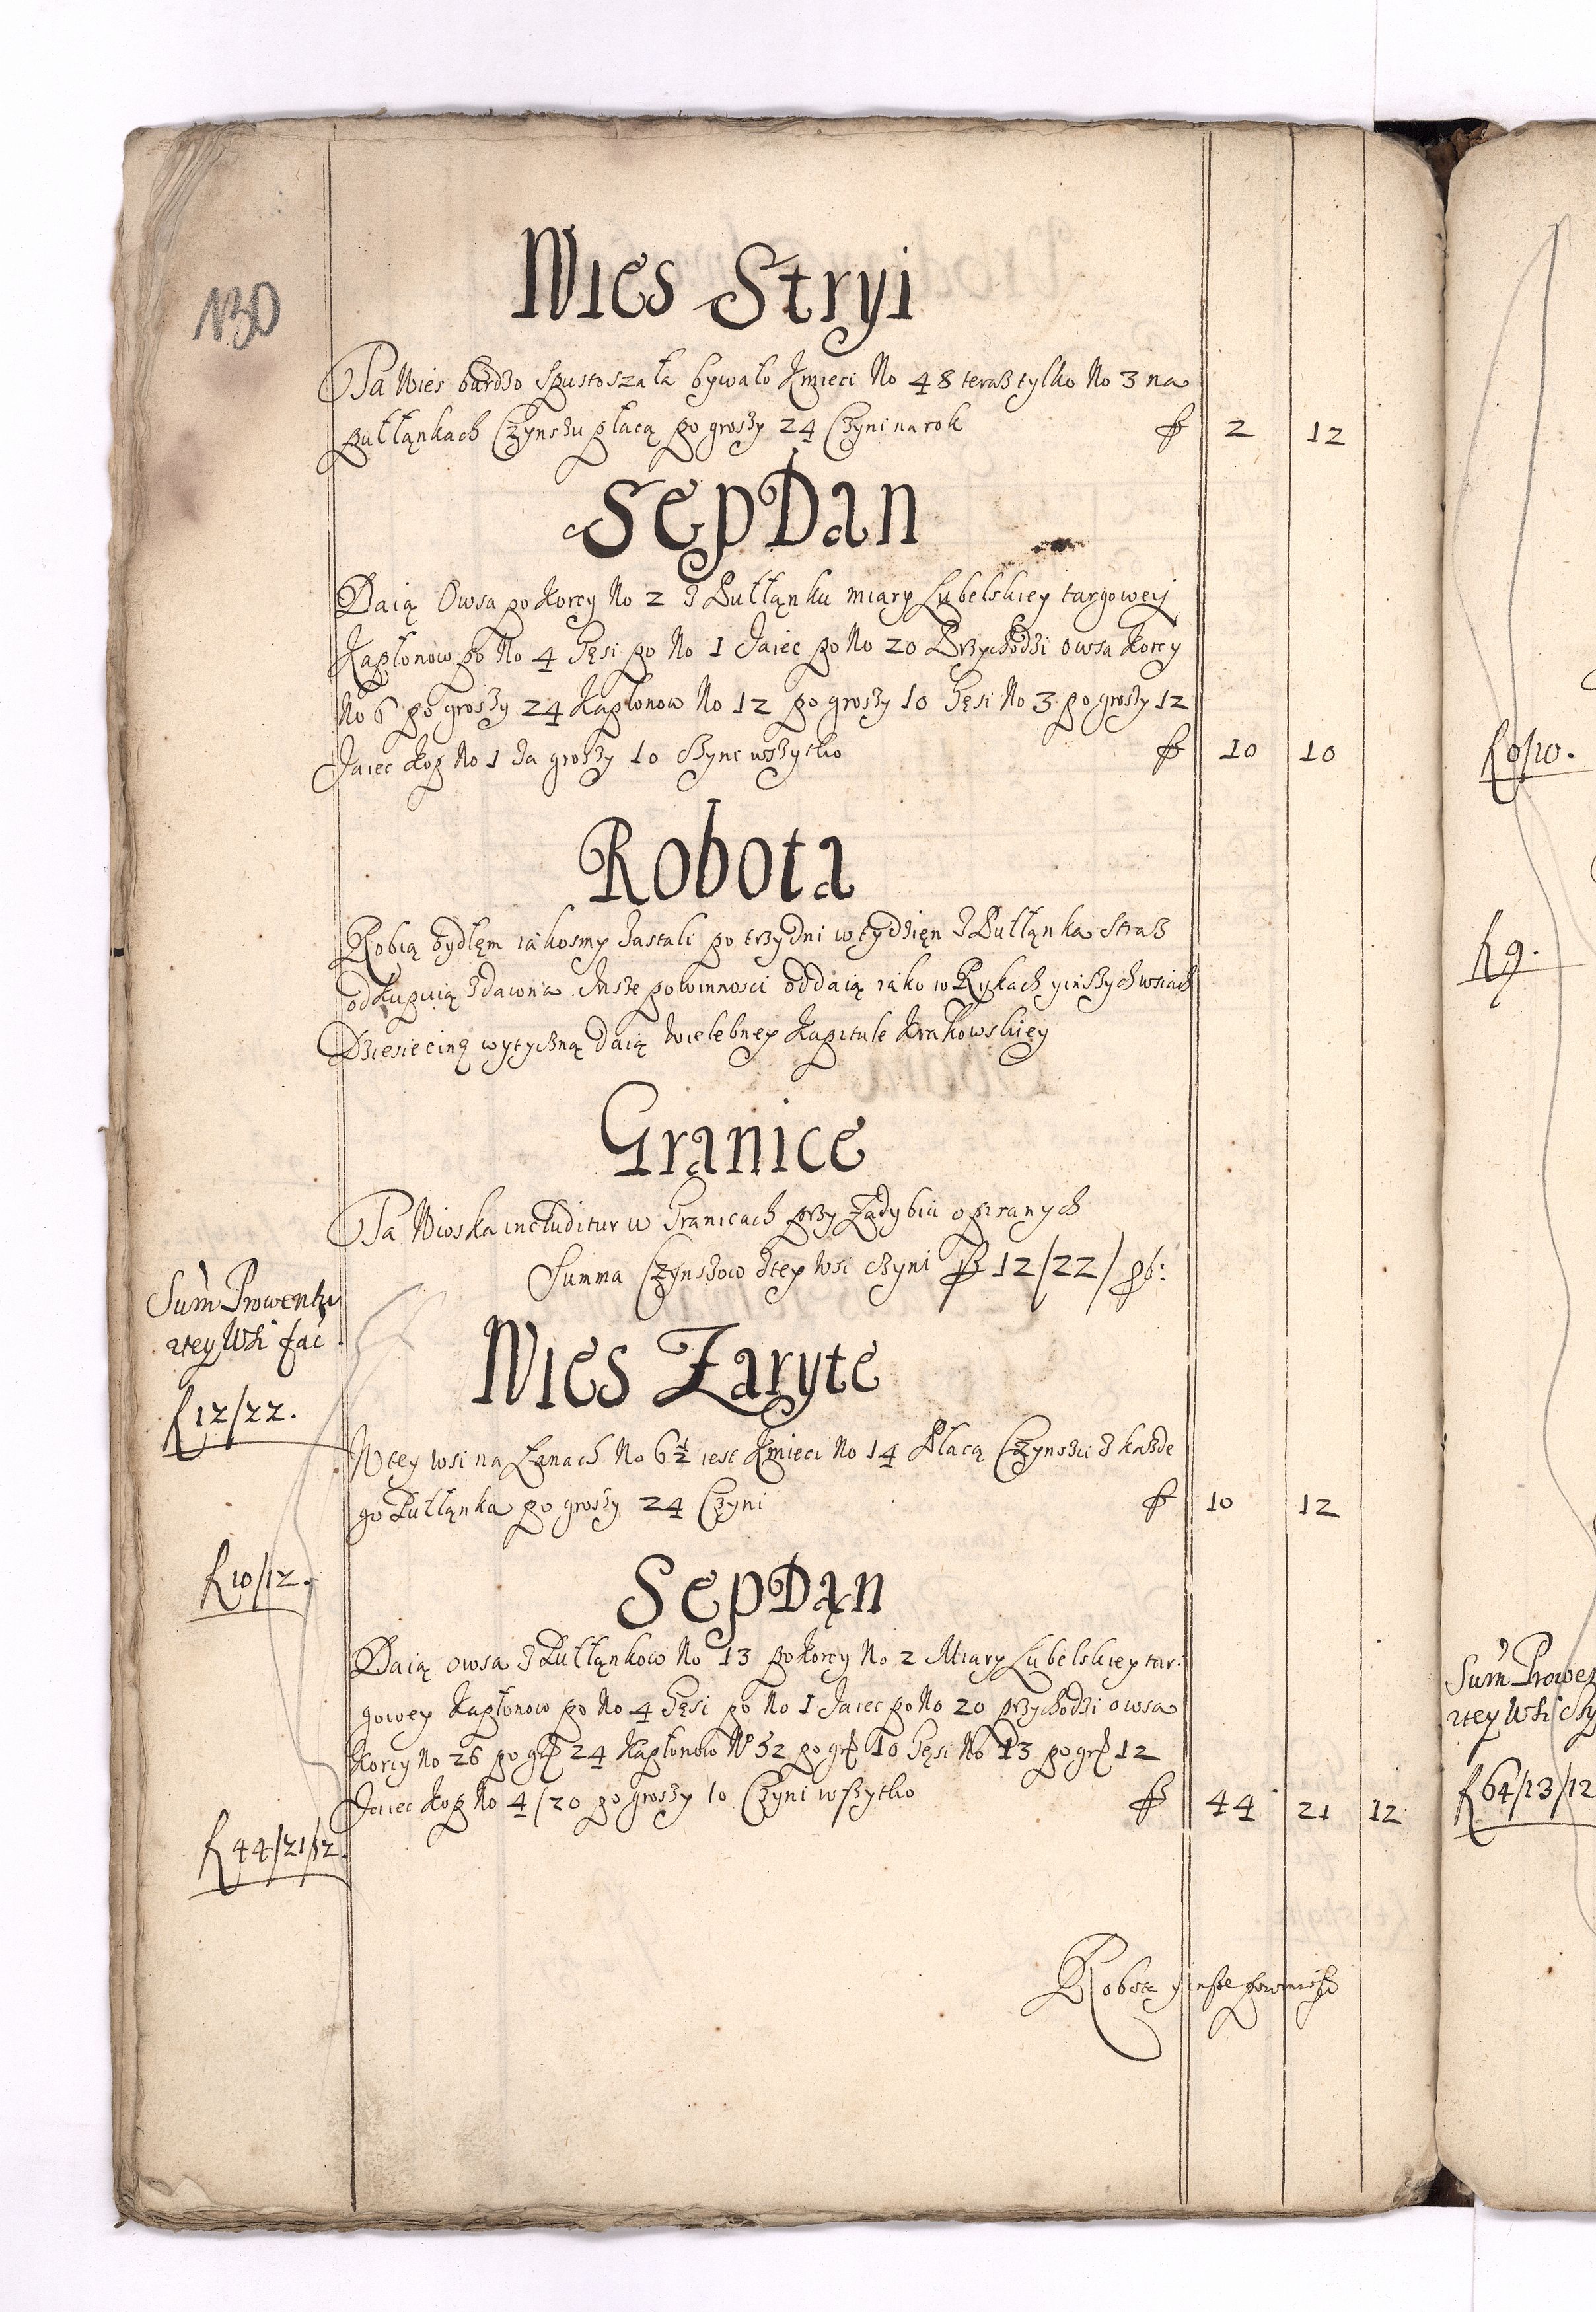 130
Wies Stryi
Ta Wies bardzo Spustoszała bywało Kmieci No 48 teraz tylko No 3 na
pułłankach Czynszu płacą po groszy 24 Czyni na rok ƒ 2 12
SepDan
Daią Owsa po Korcy No 2 z Pułłanku miary Lubelskiey targowey
Kapłonow po No 4 Gęsi po No 1 Jaiec po No 20 Przychodzi owsa Korcy
No 6 po groszy 24 Kapłonow No 12 po groszy 10 Gęsi No 3 po groszy 12
Jaiec Kop No 1 za groszy 10 czyni wszytko ƒ 10 10
Robota
Robią bydłęm iakosmy zastali po trzy dni w tydzięn z Pułłanka Straz
odkupuią zdawna. Insze powinnosci oddaią iako w Rykach y inszych wsiach
Dziesiecinę wytyczną daią Wielebney Kapitule Krakowskiey
Granice
Ta Wioska includitur w Granicach przy Zadybiu opisanych
Summa Czynszow z tey Wsi czyni ƒ 12/22/ gб:
Sum̃ Prowentu
z tey Wsi fac
ƒ 12/22.
Wies Zaryte
W tey wsi na Łanach No 6½ iest Kmieci No 14 Płacą Czynszu z kazde
go Pułłanka po groszy 24 Czyni ƒ 10 12
ƒ 10/12.
SepDąn
Daią owsa z Pułłankow No 13 po Korcy No 2 Miary Lubelskiey tar
gowey Kapłonow po No 4 Gęsi po No 1 Jaiec po No 20 przychodzi owsa
Korcy No 26 po gr 24 Kapłonow No 52 po gr 10 Gęsi No 13 po gr 12
Jaiec Kop No 4/20 po groszy 10 Czyni wszytko ƒ 44 21 12
ƒ 44/21/12.
Robotę y insze powinności
ƒ 0/10.
ƒ 9.
Sum̃ Prowen
z tey Wsi Czy
ƒ 64/13/12